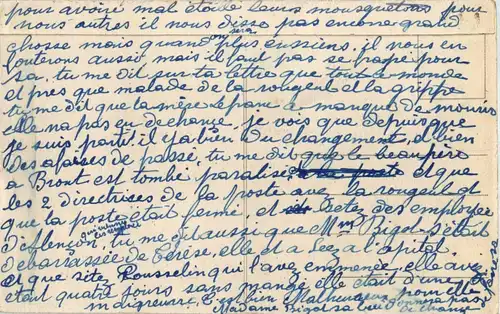 pour avoir mal étoilé leurs mousquetons pour
nous autres il nous disse pas encore grand
chosse mais quand on sera plus enssiens il nous en
fouterons aussi mais il faut pas se frapé pour
sa, tu me dit sur ta lettre que tout a monde
et pres que malade de la rougeul et la grippe
tu me dit que la mère a manqué de mourir
elle na pas eu de chance, je vois que depuis que
je suis parti il ya bien du changement, et bien
des afaises de passé, tu me dit que le beaupère
a Bront est tombé paralisé et que
les 2 directrises de la poste ave la rougeul et
que ta poste était fermé, et setez des employer
d'Alençon, qui venure les remplacé tu me dit aussi que Mme Bigot s'était
debarassée de Terèse, elle et a Seez a l'apital,
et que sitez Rousselin qui l'ave emmenée, elle avez
étais quatre jours sans mangé elle était d'une
maigreure, C'est bien Malheureux pour elle
Madame Bigot sa lui donnera pas de chance